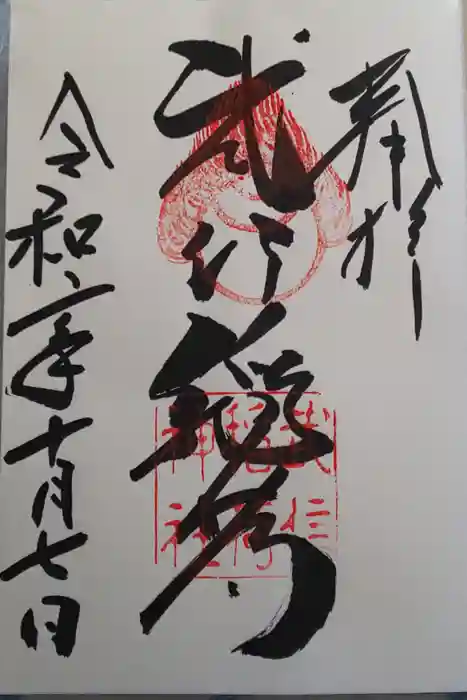 奉拝
武信稲荷
令和二年十月七日
武信
稲荷
神社